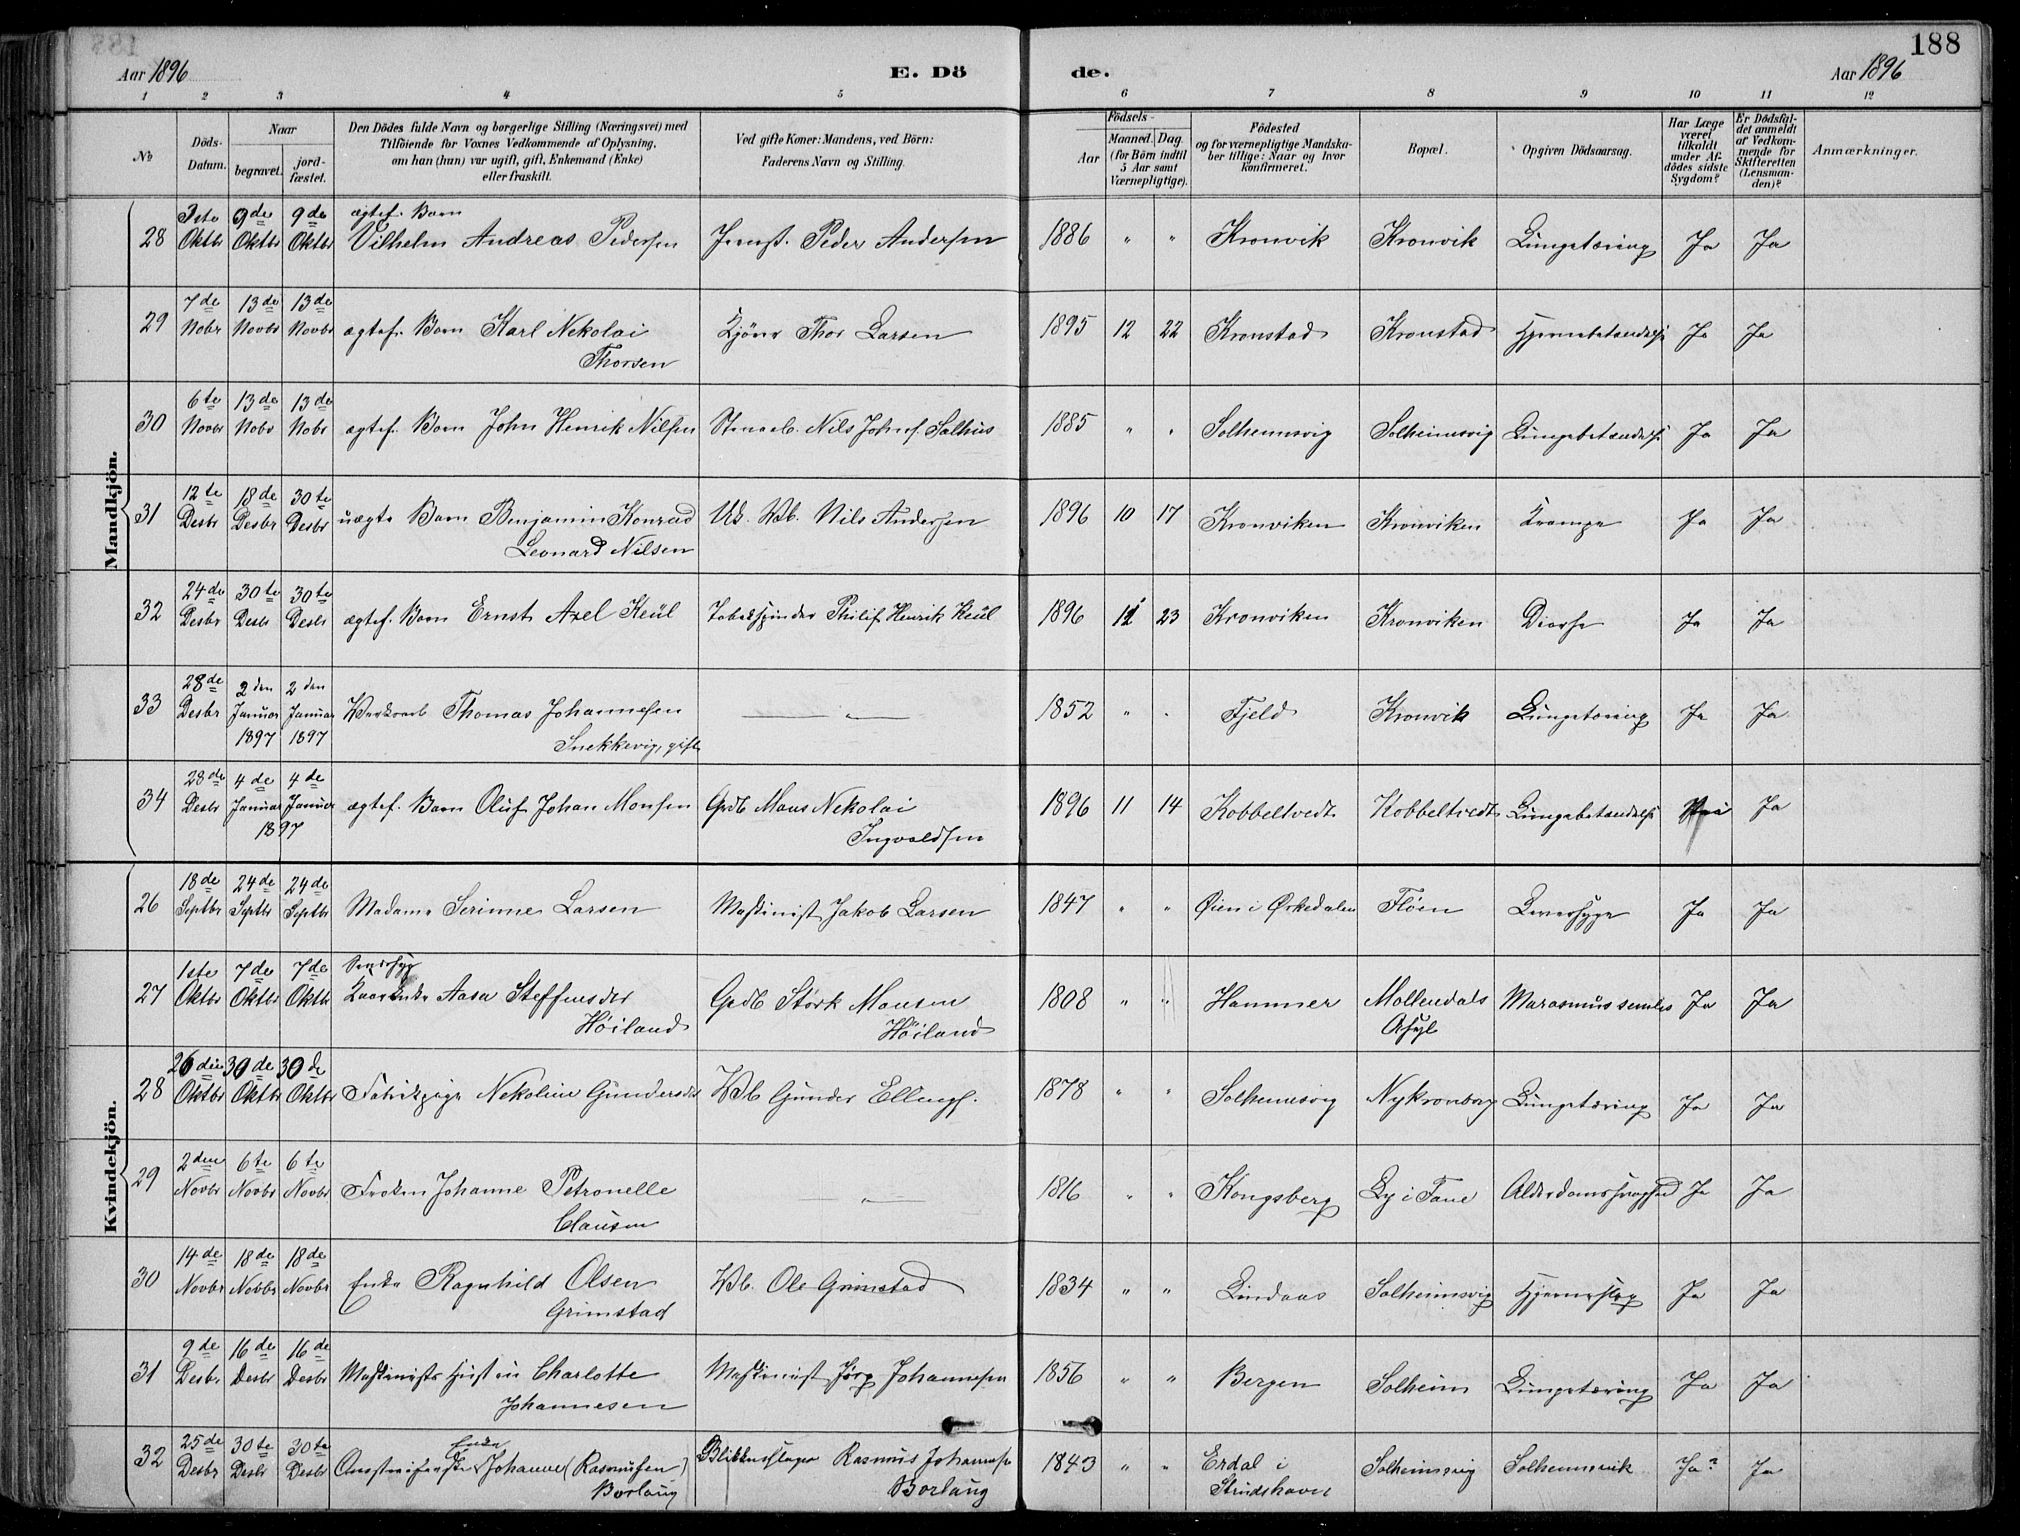 188
Aar 1896
E. Dö
de.
Aar 1896
1 2 3 4 5 6 7 8 9 10 11 12
No
Döds-Datum.
Naar
begravet.
jord-fæstet.
Den Dödes fulde Navn og borgerlige Stilling (Næringsvei) med
Tilföiende for Voxnes Vedkommende af Oplysning,
om han (hun) var ugift, gift, Enkemand (Enke)
eller fraskilt.
Ved gifte Koner: Mandens, ved Börn:
Faderens Navn og Stilling.
Födsels-
Aar
Maaned. Dag.
(for Börn indtil
5 Aar samt
Værnepligtige).
Födested
og for værnepligtige Mandska-
ber tillige: Naar og hvor
konfirmeret.
Bopæl.
Opgiven Dödsaarsag.
Har Læge
været
tilkaldt
under Af-
dödes sidste
Sygdom?
Er Dödsfal-
det anmeldt
af Vedkom-
mende for
Skifteretten
(Lensman-
den)?
Anmærkninger.
Mandkjön.
28 Oktbr 9de Oktbr 9de Oktbr ægtef. Barn Vilhelm Andreas Pedersen Peder Andersen 1886 " " Kronvik Kronvik Lungetæring Ja Ja
29 7de Nobr 13de Novbr 13de Novbr ægtef. Barn Karl Nekolai Thorsen Kjörer Thor Larsen 1895 12 22 Kronstad Kronstad Hjernebetændelse Ja Ja
30 6te Novbr 13de Nobr 13de Nobr ægtef. Barn John Henrik Nilsen Stenarb. Nils Johns. Salhus 1885 " " Solheimsvig Solheimsvig Lungebetændelse Ja Ja
31 12te Desbr 18de Desbr 30te Desbr uægte Barn Benjamin Konrad Leonard Nilsen Nils Andersen 1896 10 17 Kronviken Kronviken Krampe Ja Ja
32 24de Desbr 30te Desbr 30te Desbr ægtef. Barn Ernst Axel Keül Tobakspinder Philip Henrik Keül 1896 23 Kronviken Kronviken Ja Ja
33 28de Desbr 2den Januar 1897 2den Januar 1897 Thomas Johannesen Snekkevig, gift " 1852 " " Fjeld Kronvik Lungetæring Ja Ja
34 28de Desbr 4de Januar 4de Januar 1897 ægtef. Barn Oluf Johan Monsen Grdb Mons Nekolai Ingvaldsen 1896 11 14 Kobbeltvedt Kobbeltvedt Lungebetændelse Ja
Kvindekjön.
26 18de Septbr 24de Septbr 24de Septbr Madame Serinne Larsen Maskinist Jakob Larsen 1847 " " Øien i Ørkedalen Fløen Leversyge Ja Ja
27 1ste Oktbr 7de Oktbr 7de Oktbr Aasa Steffensdtr Höiland Grdb Störk Monsen Höiland 1808 " " Hammer Møllendals Asyl Marasmus senilis Ja Ja
28 26de Oktbr 30de Oktbr 30de Oktbr Fabrikpige Nekoline Gundersdtr Gunder Ellings. 1878 " " Solheimsvig Nykronborg Lungetæring Ja Ja
29 2den Novbr 6te Novbr 6te Novbr Frøken Johanne Petronelle Clausen " 1816 " " Kongsberg i Fane Alderdomssvaghed Ja Ja
30 14de Novbr 18de Novbr 18de Novbr Enke Ragnhild Olsen Grimstad Ole Grimstad 1834 " " Lindaas Solheimsvig Hjerneslag Ja Ja
31 9de Desbr 16de Desbr 16de Desbr Maskinists Hustru Charlotte Johannesen Maskinist Jørg Johannesen 1856 " " Bergen Solheim Lungetæring Ja Ja
32 25de Desbr 30te Desbr 30te Desbr Enke Johanne (Rasmusen) Borlaug Blikkenslager Rasmus Johannes Borlaug 1843 " " Erdal i Strudshavn Solheimsvig Solheimsvik Ja? Ja